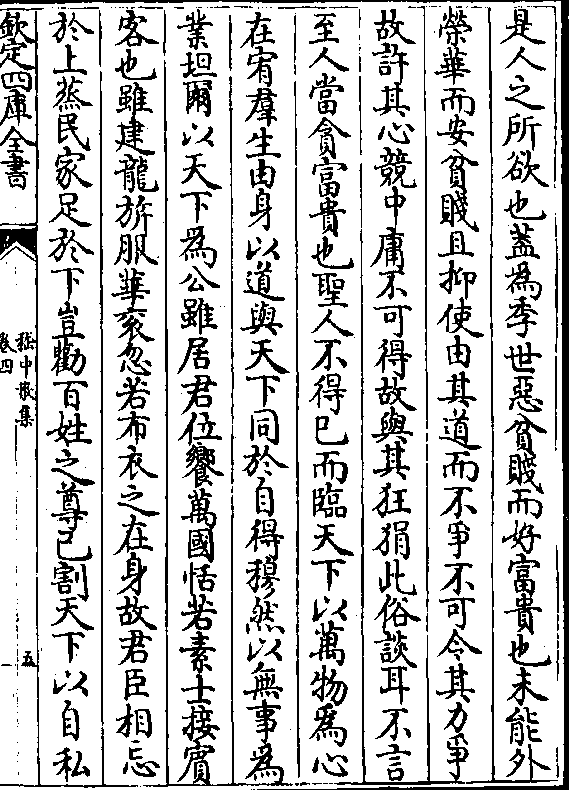 是人之所欲也蓋為季世惡貧賤而好富貴也未能外
榮華而安貧賤且抑使由其道而不爭不可令其力爭
故許其心競中庸不可得故與其狂狷此俗談耳不言
至人當貪富貴也聖人不得已而臨天下以萬物為心
在宥羣生由身以道與天下同於自得穆然以無事為
業坦爾以天下為公雖居君位饗萬國恬若素士接賓
客也雖建龍旂服華衮忽若布衣之在身故君臣相忘
於上蒸民家足於下豈勸百姓之尊己割天下以自私
欽定四庫全書
嵇中散集
卷四
五